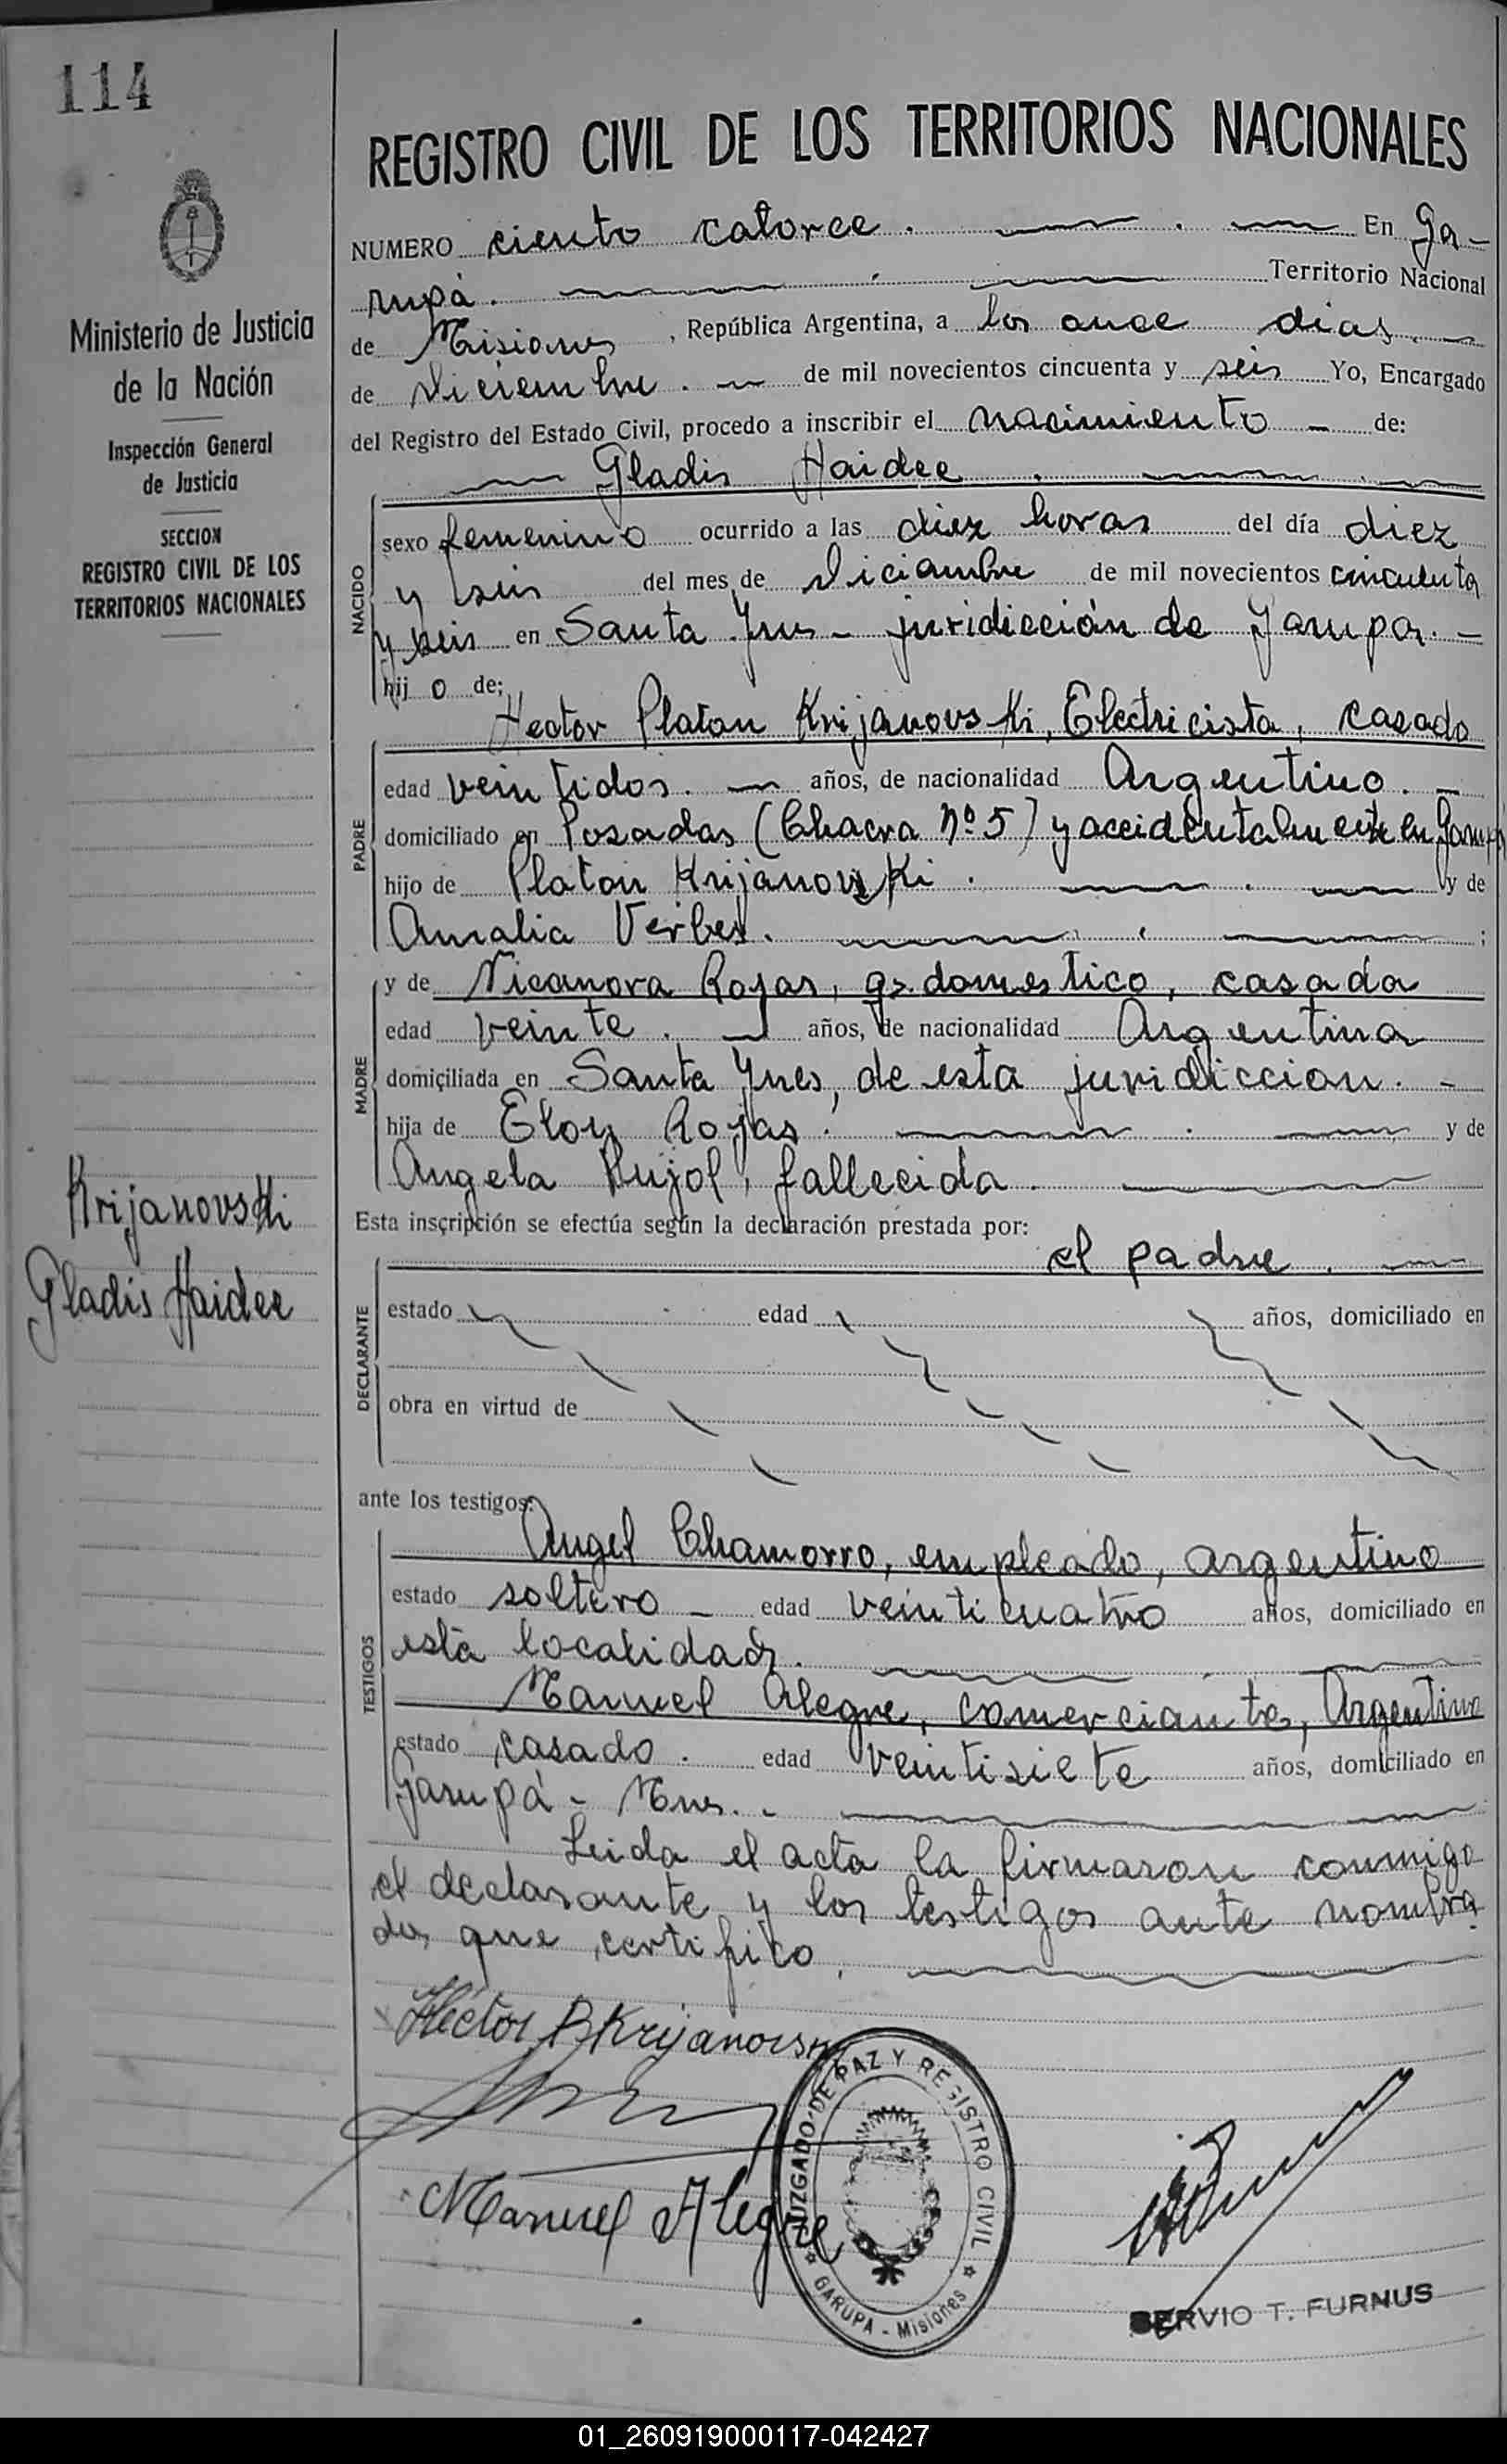 114
REGISTRO CIVIL DE LOS TERRITORIOS NACIONALES
Ministerio de Justicia
de la Nación
Inspección General
de Justicia
SECCION
REGISTRO CIVIL DE LOS
TERRITORIOS NACIONALES
Krijanovski
Gladis Haidee
NUMERO ciento catorce. En Ga-
rupá. Territorio Nacional
de Misiones, República Argentina, a los once dias
de Diciembre. de mil novecientos cincuenta y seis Yo, Encargado
del Registro del Estado Civil, procedo a inscribir el nacimiento de:
Gladis Haidee.
NACIDO
sexo femenino ocurrido a las diez horas del día diez
y seis del mes de Diciambre de mil novecientos cincuenta
y seis en Santa Ynes - juridicción de Garupa. -
hij o de:
Hector Platon Krijanovski, Electricista, casado
PADRE
edad veintidos. años, de nacionalidad Argentino. -
domiciliado en Posadas (Chacra Nº 5) y accidentalmente en Garupá
hijo de Platon Krijanovski. y de
Amalia Verbes. ;
MADRE
y de Nicanora Rojas, qs. domestico, casada
edad veinte. años, de nacionalidad Argentina
domiciliada en Santa Ynes, de esta juridiccion. -
hija de Eloy Rojas. y de
Angela Pujol, fallecida.
Esta inscripción se efectúa según la declaración prestada por:
el padre.
DECLARANTE
estado edad años, domiciliado en
obra en virtud de
ante los testigos:
TESTIGOS
Angel Chamorro, empleado, argentino
estado soltero - edad veinticuatro años, domiciliado en
esta localidad.
Manuel Alegre, comerciante, Argentino
estado casado. edad veintisiete años, domiciliado en
Garupá - Mnes. -
Leida el acta la firmaron conmigo
el declarante y los testigos ante nombra
dos que certifico.
Héctor P Krijanovski
Manuel Alegre
JUZGADO DE PAZ Y REGISTRO CIVIL
GARUPA - Misiones
SERVIO T. FURNUS
01_260919000117-042427